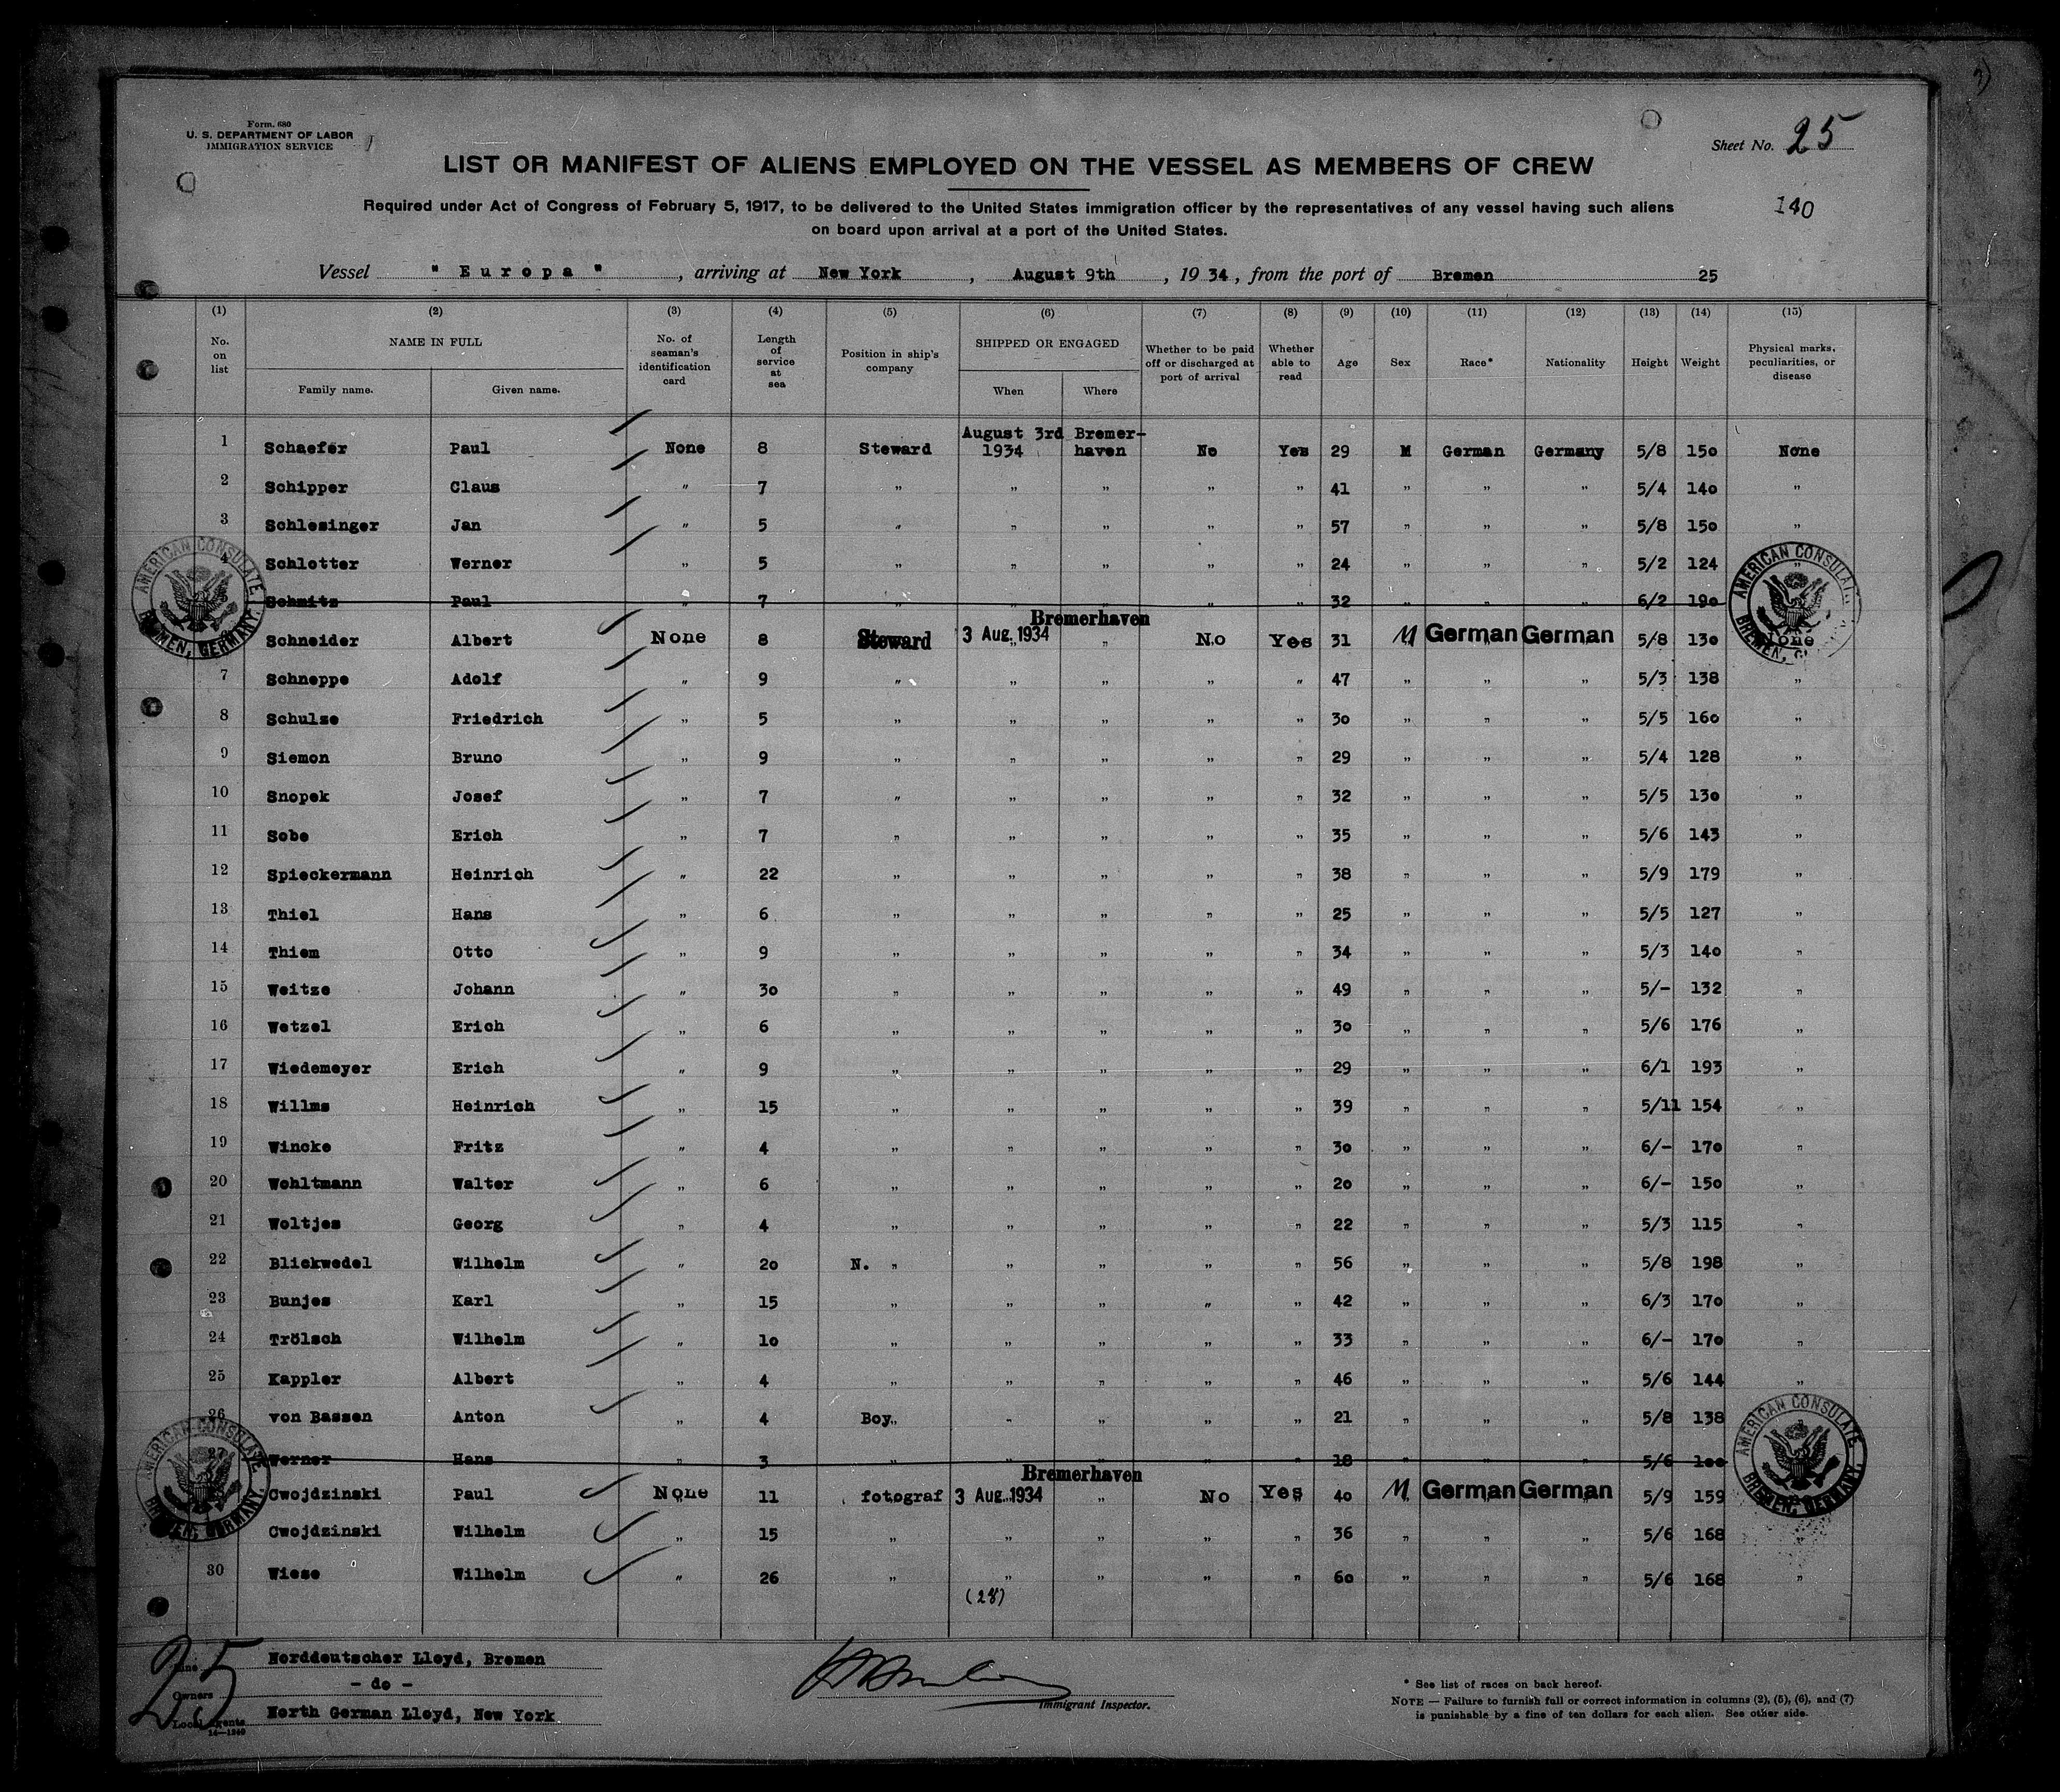 Form. 680
U. S. DEPARTMENT OF LABOR
IMMIGRATION SERVICE
Sheet No. 25
LIST OR MANIFEST OF ALIENS EMPLOYED ON THE VESSEL AS MEMBERS OF CREW
140
Required under Act of Congress of February 5, 1917, to be delivered to the United States immigration officer by the representatives of any vessel having such aliens
on board upon arrival at a port of the United States.
Vessel " Europa ", arriving at New York, August 9th, 1934, from the port of Bremen 25
(1) (2) (3) (4) (5) (6) (7) (8) (9) (10) (11) (12) (13) (14) (15)
No. on list NAME IN FULL Family name. Given name. No. of seaman's identification card Length of service at sea Position in ship's company SHIPPED OR ENGAGED When Where Whether to be paid off or discharged at port of arrival Whether able to read Age Sex Race* Nationality Height Weight Physical marks, peculiarities, or disease
1 Schaefer Paul None 8 Steward August 3rd 1934 Bremer-haven No Yes 29 M German Germany 5/8 150 None
2 Schipper Claus " 7 " " " " " 41 " " " 5/4 140 "
3 Schlesinger Jan " 5 " " " " " 57 " " " 5/8 150 "
4 Schlotter Werner " 5 " " " " " 24 " " " 5/2 124 "
Schmitz Paul " 7 " " " " " 32 " " " 6/2 190
Schneider Albert None 8 Steward 3 Aug. 1934 Bremerhaven " No Yes 31 M German German 5/8 130 None
7 Schneppe Adolf " 9 " " " " " 47 " " " 5/3 138 "
8 Schulze Friedrich " 5 " " " " " 30 " " " 5/5 160 "
9 Siemon Bruno " 9 " " " " " 29 " " " 5/4 128 "
10 Snopek Josef " 7 " " " " " 32 " " " 5/5 130 "
11 Sobe Erich " 7 " " " " " 35 " " " 5/6 143 "
12 Spieckermann Heinrich " 22 " " " " " 38 " " " 5/9 179 "
13 Thiel Hans " 6 " " " " " 25 " " " 5/5 127 "
14 Thiem Otto " 9 " " " " " 34 " " " 5/3 140 "
15 Weitze Johann " 30 " " " " " 49 " " " 5/- 132 "
16 Wetzel Erich " 6 " " " " " 30 " " " 5/6 176 "
17 Wiedemeyer Erich " 9 " " " " " 29 " " " 6/1 193 "
18 Willms Heinrich " 15 " " " " " 39 " " " 5/11 154 "
19 Wincke Fritz " 4 " " " " " 30 " " " 6/- 170 "
20 Wohltmann Walter " 6 " " " " " 20 " " " 6/- 150 "
21 Woltjes Georg " 4 " " " " " 22 " " " 5/3 115 "
22 Blickwedel Wilhelm " 20 N. " " " " " 56 " " " 5/8 198 "
23 Bunjes Karl " 15 " " " " " 42 " " " 6/3 170 "
24 Trölsch Wilhelm " 10 " " " " " 33 " " " 6/- 170 "
25 Kappler Albert " 4 " " " " " 46 " " " 5/6 144 "
26 von Bassen Anton " 4 Boy " " " " " 21 " " " 5/8 138
27 Werner Hans " 3 " " " " " 18 " " " 5/6 100
Cwojdzinski Paul None 11 fotograf 3 Aug. 1934 Bremerhaven " No Yes 40 M German German 5/9 159
Cwojdzinski Wilhelm " 15 " " " " " 36 " " " 5/6 168 "
30 Wiese Wilhelm " 26 " " " " " 60 " " " 5/6 168 "
(28)
AMERICAN CONSULATE BREMEN, GERMANY.
AMERICAN CONSULATE BREMEN, GERMANY.
AMERICAN CONSULATE BREMEN, GERMANY.
AMERICAN CONSULATE BREMEN, GERMANY.
25
Norddeutscher Lloyd, Bremen
Owners - do -
Local Agents North German Lloyd, New York
14—1240
Immigrant Inspector.
* See list of races on back hereof.
NOTE — Failure to furnish full or correct information in columns (2), (5), (6), and (7)
is punishable by a fine of ten dollars for each alien. See other side.